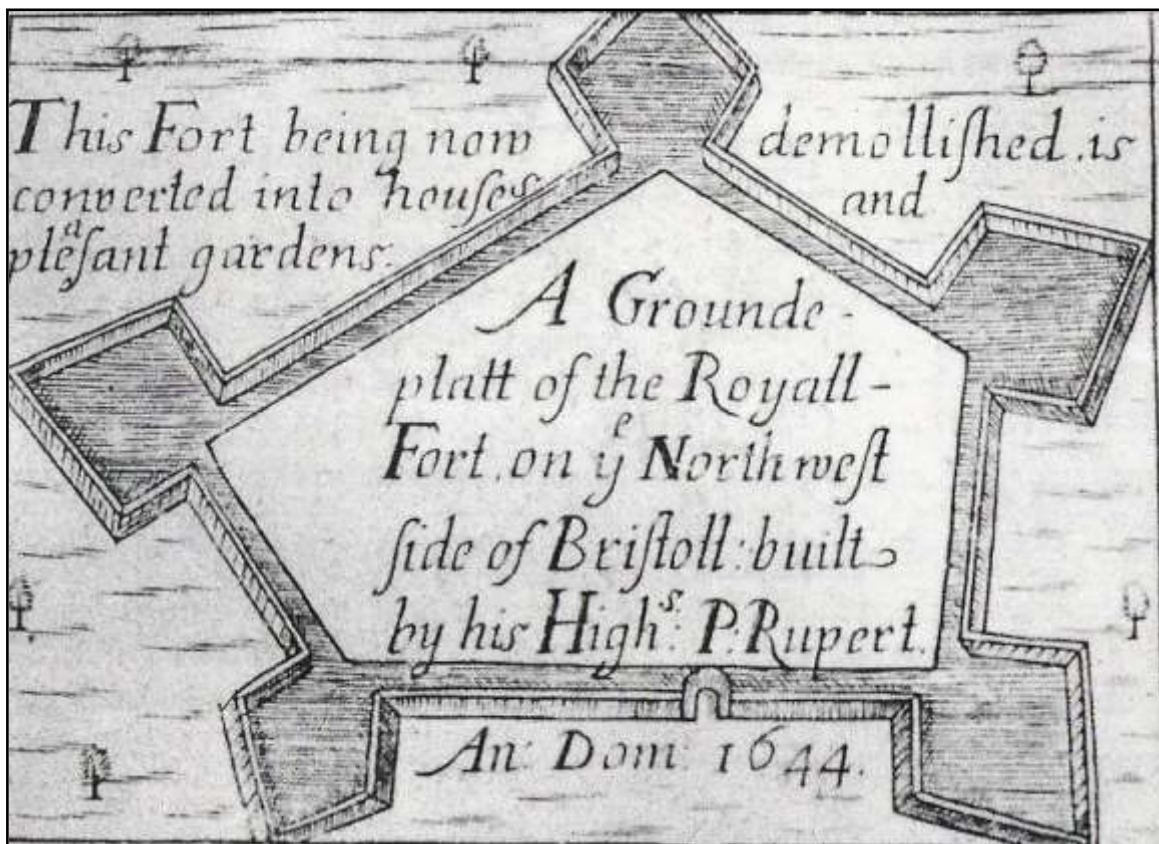 This Fort being now demolliſhed .is
converted into houſes and
pleaſant gardens:
A Grounde-
platt of the Royall-
Fort. on yͤ Northweſt
ſide of Briſtoll: built
by his Highˢ: P: Rupert.
An: Dom: 1644.